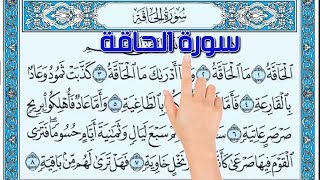 سُورَةُ الحَاقَّةِ
سورة الحاقة
ٱلْحَآقَّةُ ١ مَا ٱلْحَآقَّةُ ٢ وَمَآ أَدْرَىٰكَ مَا ٱلْحَآقَّةُ ٣ كَذَّبَتْ ثَمُودُ وَعَادٌۢ
بِٱلْقَارِعَةِ ٤ فَأَمَّا ثَمُودُ فَأُهْلِكُوا۟ بِٱلطَّاغِيَةِ ٥ وَأَمَّا عَادٌ فَأُهْلِكُوا۟ بِرِيحٍ
صَرْصَرٍ عَاتِيَةٍ ٦ سَبْعَ لَيَالٍ وَثَمَٰنِيَةَ أَيَّامٍ حُسُومًا فَتَرَى
ٱلْقَوْمَ فِيهَا صَرْعَىٰ نَخْلٍ خَاوِيَةٍ ٧ فَهَلْ تَرَىٰ لَهُم مِّنۢ بَاقِيَةٍ ٨